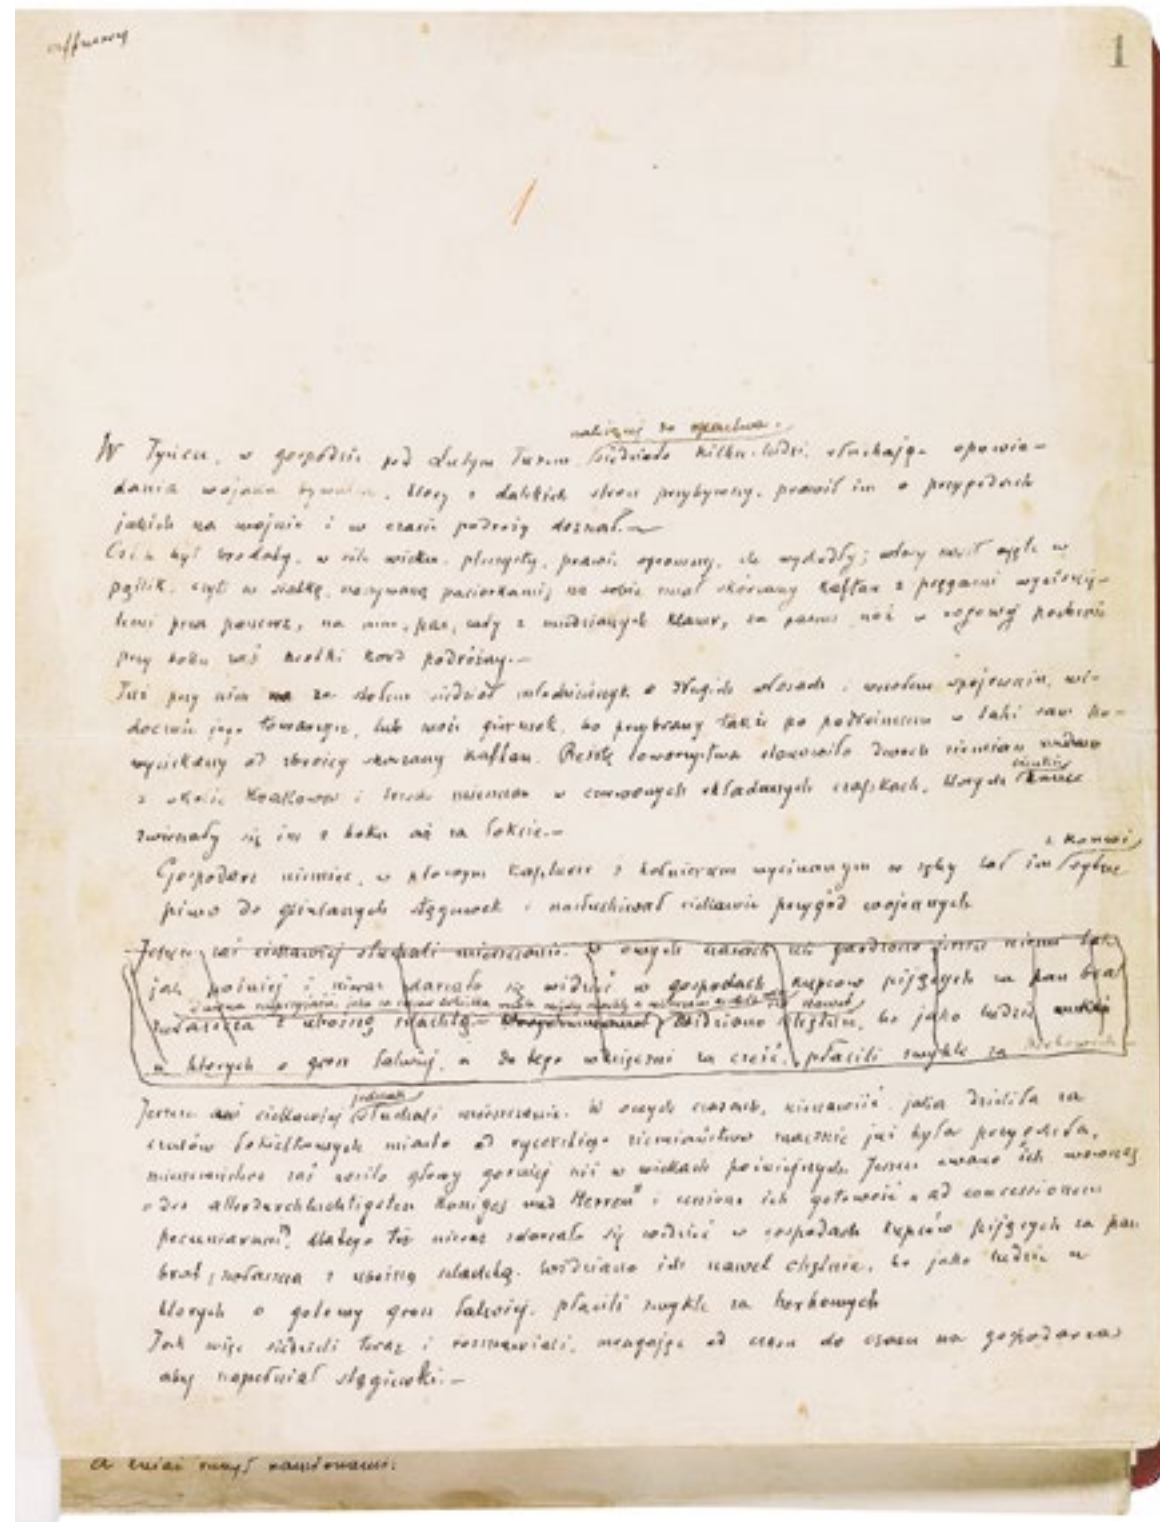 1
należącej do opactwa.
W Tyńcu, w gospodzie pod Lutym Turem, siedziało kilku ludzi, słuchając opowia-
dania wojaka bywalca, który z dalekich stron przybywszy, prawił im o przygodach
jakich na wojnie i w czasie podróży doznał.—
Człek był brodaty, w sile wieku, pleczysty, prawie ogromny, ale wychudły; włosy nosił ujęte w
pątlik, czyli w siatkę, naszywaną paciorkami; na sobie miał skórzany kaftan z pręgami wyciśnię-
temi przez pancerz, na nim pas, cały z miedzianych klamr, za pasem nóż w rogowej pochwie
przy boku zaś krótki kord podróżny.—
Tuż przy nim za stołem siedział młodzieńczyk o długich włosach i wesołem spojrzeniu, wi-
docznie jego towarzysz, lub może giermek, bo przybrany także po podróżnemu w taki sam po-
wyciskany od zbroicy skórzany kaftan. Resztę towarzystwa stanowiło dwóch ziemian
z okolic Krakowa i trzech mieszczan w czerwonych składanych czapkach, których cienkie końce
zwieszały się im z boku aż za łokcie.—
z konwi
Gospodarz niemiec, w płowym kapturze z kołnierzem wycinanym w zęby lał im sytne
piwo do glinianych stągiewek i nasłuchiwał ciekawie przygód wojennych
Jeszcze zaś ciekawiej słuchali mieszczanie. W owych czasach nie gardzono jeszcze niemi tak
jak później i nieraz zdarzało się widzieć w gospodach kupców pijących za pan brat
zwłaszcza z uboższą szlachtą— Widziano chętnie, bo jako ludzie
u których o grosz łatwiej, a do tego płacili zwykle za
jednak
Jeszcze ciekawiej słuchali mieszczanie. W owych czasach, nienawiść, jaka dzieliła za
czasów Łokietkowych miasto od rycerskiego ziemiaństwa znacznie już była przygasła,
mieszczaństwo zaś nosiło głowy górniej niż w wiekach późniejszych. Jeszcze zwano ich wówczas
„des allerdurchluchtigsten Koniges und Herren” i ceniono ich gotowość „ad concessionem
pecuniarum”, dlatego też nieraz zdarzało się widzieć w gospodach kupców pijących za pan
brat, zwłaszcza z uboższą szlachtą. Widziano ich nawet chętnie, bo jako ludzie u
których o gotowy grosz łatwiej, płacili zwykle za herbowych
Tak więc siedzieli teraz i rozmawiali, mrugając od czasu do czasu na gospodarza
aby napełniał stągiewki.—